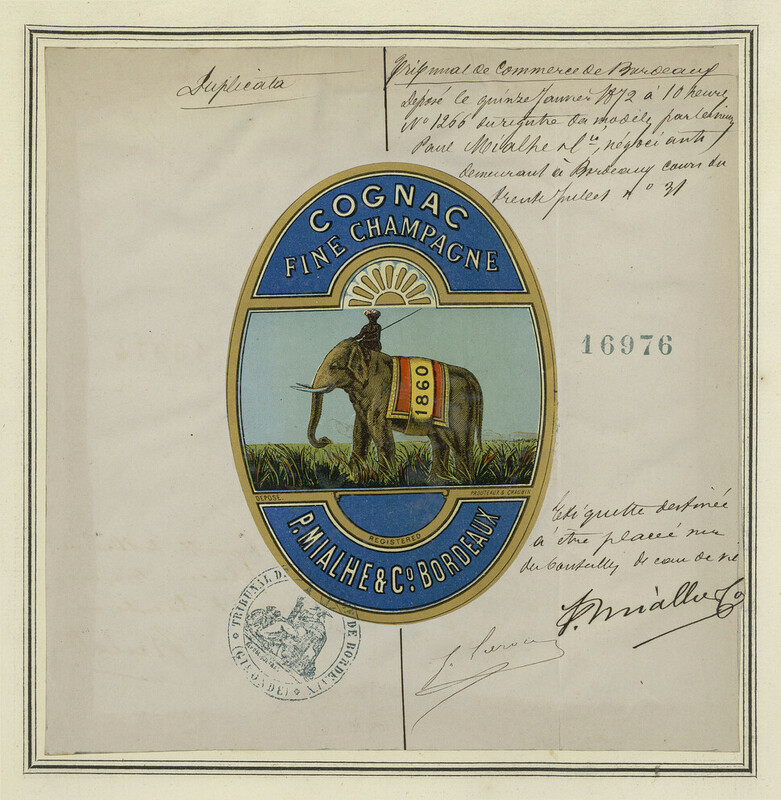 Duplicata
Tribunal de Commerce de Bordeaux
Déposé le quinze Janvier 1872 à 10 heures
No 1266 du registre des modèles, par le sieur
Paul Mialhe & Cie, négociants
demeurant à Bordeaux cours du
trente Juillet no 31
COGNAC
FINE CHAMPAGNE
1860
16976
DEPOSE.
PROUTEAUX & CHAUBIN
REGISTERED
P. MIALHE & Co. BORDEAUX
Etiquette destinée
à être placée sur
des bouteilles de eau de vie
P. Mialhe & Co
TRIBUNAL DE BORDEAUX
(GIRONDE)